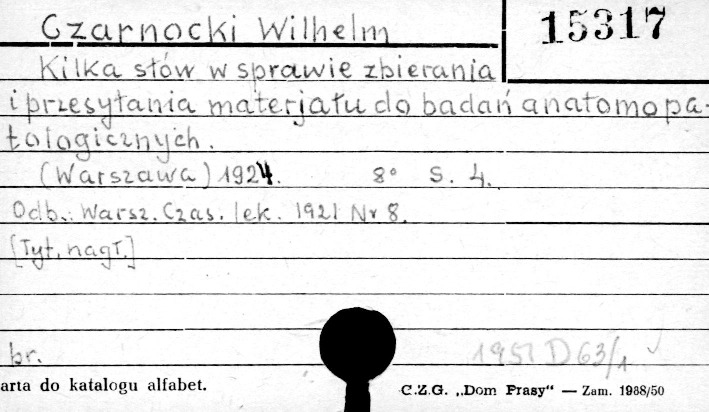 Czarnocki Wilhelm
15317
Kilka słów w sprawie zbierania
i przesyłania materjału do badań anatomopa-
tologicznych.
(Warszawa) 1924. 8° S. 4.
Odb.: Warsz. Czas. lek. 1921 Nr 8.
[Tyt. nagł.]
br.
1951 D 63/1
arta do katalogu alfabet.
C.Z.G. „Dom Prasy“ — Zam. 1988/50